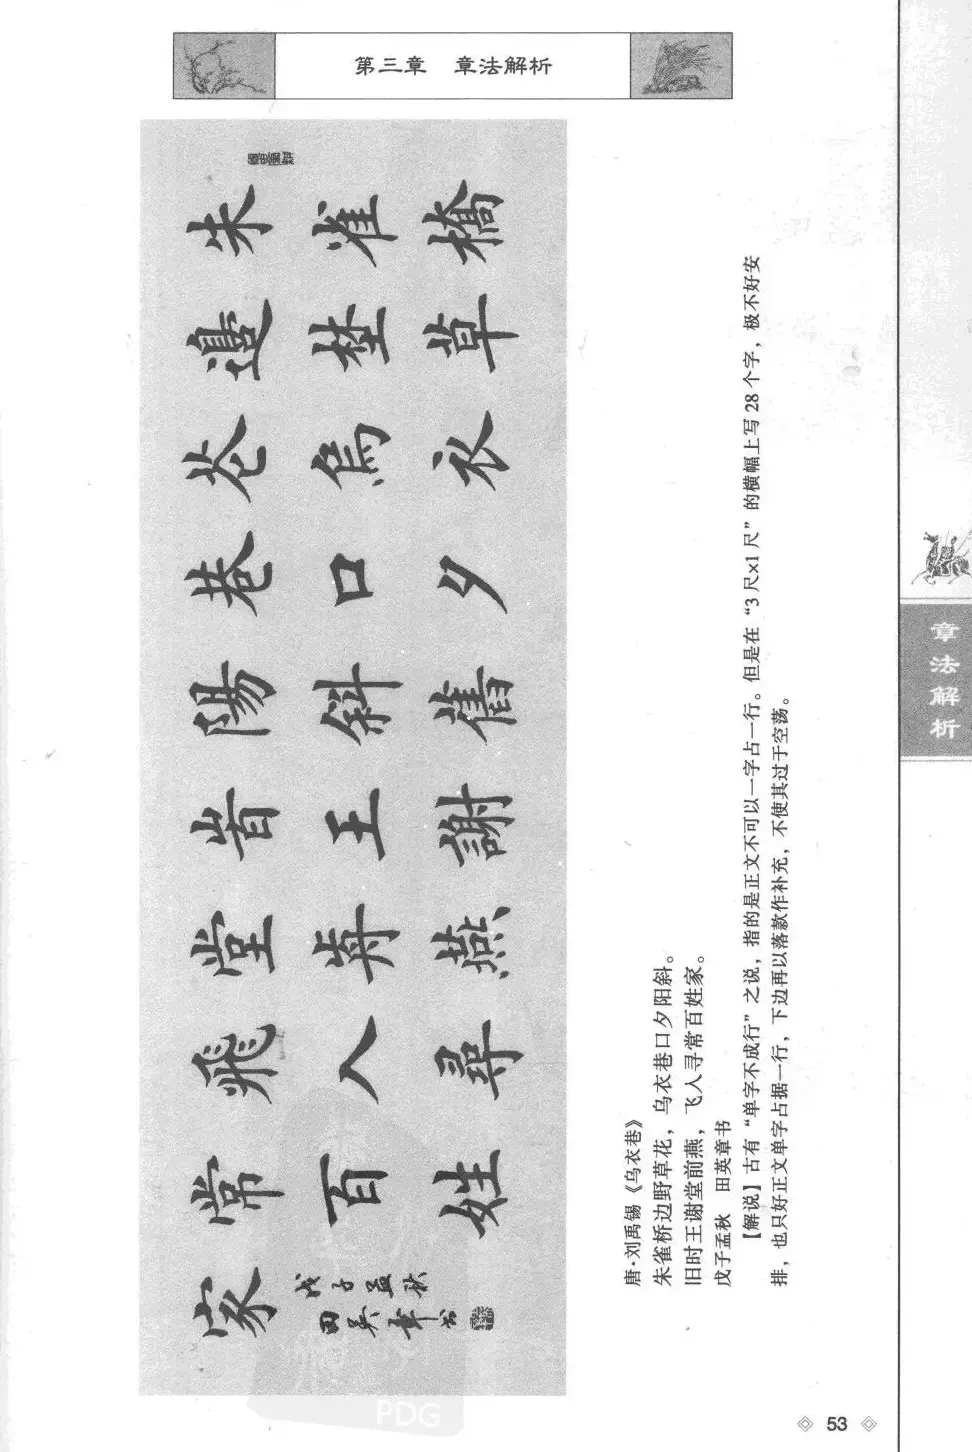 第三章 章法解析
朱雀橋
邊埜草
花烏衣
巷口夕
陽斜舊
旹王謝
堂歬燕
飛入尋
常百姓
家
戊子孟秋
田英章书
唐·刘禹锡《乌衣巷》
朱雀桥边野草花，乌衣巷口夕阳斜。
旧时王谢堂前燕，飞入寻常百姓家。
戊子孟秋 田英章书
【解说】古有“单字不成行”之说，指的是正文不可以一字占一行。但是在“3尺×1尺”的横幅上写28个字，极不好安
排，也只好正文单字占据一行，下边再以落款作补充，不使其过于空荡。
章法解析
53
PDG